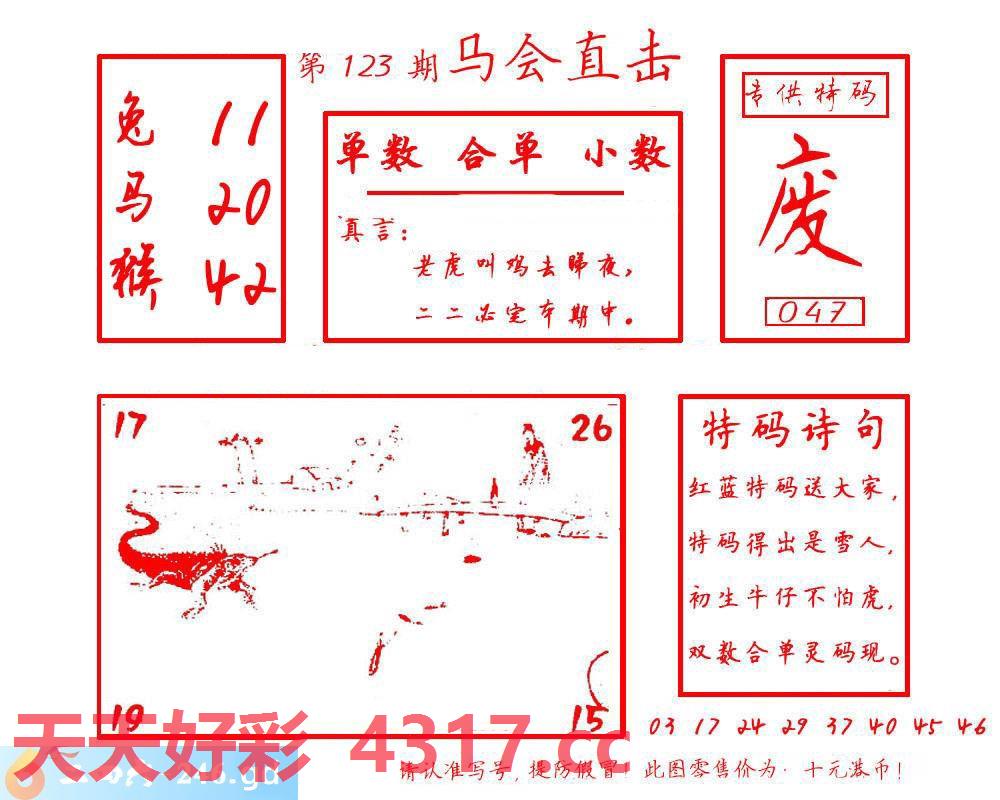 第 123 期 马会直击
兔 11
马 20
猴 42
单数 合单 小数
真言：
老虎叫鸡去睇夜，
二二必定本期中。
专供特码
废
047
17
26
19
15
特码诗句
红蓝特码送大家，
特码得出是雪人，
初生牛仔不怕虎，
双数合单灵码现。
03 17 24 29 37 40 45 46
天天好彩 4317.cc
246.gd
请认准写号，提防假冒！此图零售价为·十元港币！